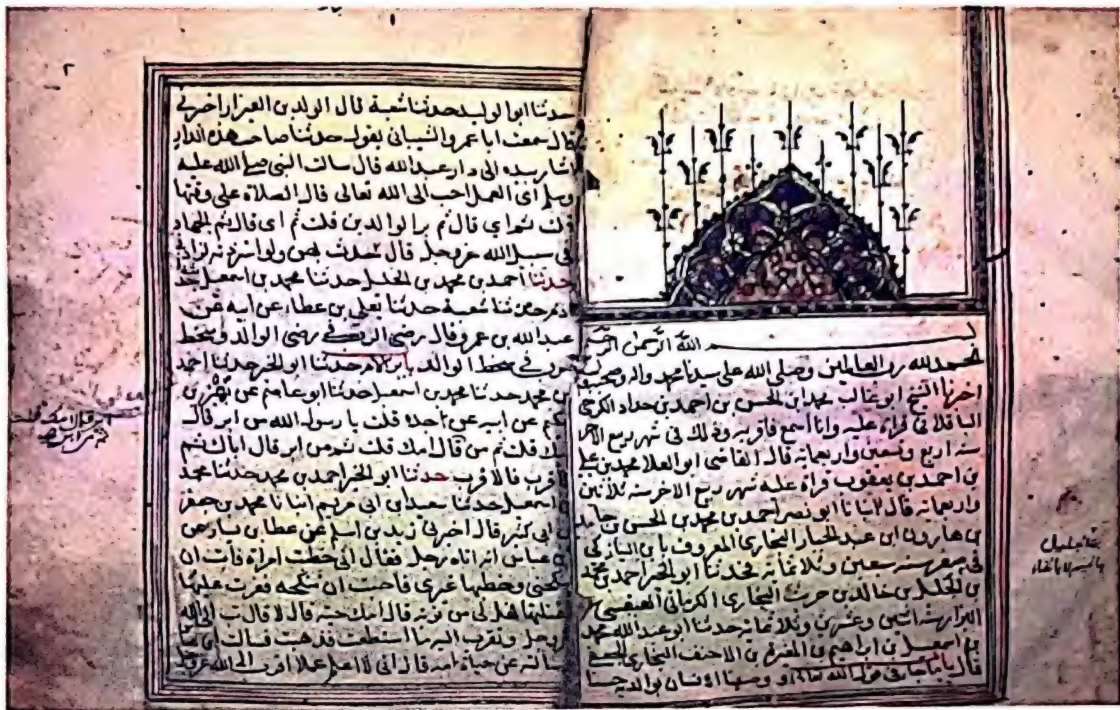 الله الرحمن الرحيم
الحمد لله رب العالمين وصلى الله على سيدنا محمد واله وصحبه
اخبرنا الشيخ ابو غالب محمد ابن الحسن بن احمد بن حداد الكرجي
الباقلاني قراة عليه وانا اسمع فاقربه وذلك في شهر ربيع الاخر
سنه اربع وتسعين واربعماية قال القاضي ابو العلا محمد بن علي
بن احمد بن يعقوب قراة عليه شهر ربيع الاخر سنه ثلاثين
واربعماية قال انبانا ابو نصر احمد بن محمد بن الحسن بن حامد
بن هارون ابن عبد الجبار البخاري المعروف بابن النيازكي
في صفر سنه سبعين وثلاثمايه حدثنا ابو الخير احمد بن محمد
بن الجليل بن خالد بن حريث البخاري الكرماني العبقسي
البزار سنه اثنين وعشرين وثلاثمايه حدثنا ابو عبد الله محمد
بن اسمعيل بن ابراهيم بن المغيرة بن الاحنف البخاري الجعفي
قال باب ما جا في قول الله تعالى و وصينا الانسان بوالديه حسنا
حدثنا ابو الوليد حدثنا شعبة قال الوليد بن العيزار اخبرني
قال سمعت ابا عمرو الشيباني يقول حدثنا صاحب هذه الدار
اشار بيده الى دار عبد الله قال سالت النبي صلى الله عليه
وسلم اي العمل احب الى الله تعالى قال الصلاة على وقتها
قلت ثم اي قال ثم بر الوالدين قلت ثم اي قال ثم الجهاد
في سبيل الله عز وجل قال حدثني بهن ولو استزدته لزادني
حدثنا احمد بن محمد بن الجليل حدثنا محمد بن اسمعيل حدثنا
ادم حدثنا شعبة حدثنا يعلى بن عطاء عن ابيه عن
عبد الله بن عمرو قال رضى الرب في رضى الوالد وسخط
الرب في سخط الوالد باب بر الام حدثنا ابو الخير حدثنا احمد
بن محمد حدثنا محمد بن اسمعيل حدثنا ابو عاصم عن بهز بن
حكيم عن ابيه عن جده قلت يا رسول الله من ابر قال
امك قلت ثم من قال امك قلت ثم من ابر قال اباك ثم
الاقرب فالاقرب حدثنا ابو الخير احمد بن محمد حدثنا محمد
بن اسمعيل حدثنا سعيد بن ابي مريم انبانا محمد بن جعفر
بن ابي كثير قال اخبرني زيد بن اسلم عن عطا بن يسار عن
بن عباس انه اتاه رجل فقال اني خطبت امراة فابت ان
تنكحني وخطبها غيري فاحبت ان تنكحه فغرت عليها
فقتلتها فهل لي من توبة قال امك حية قال لا قال تب الى الله
عز وجل وتقرب اليه ما استطعت فذهبت فسالت ابن عباس
سالته عن حياة امه قال اني لا اعلم عملا اقرب الى الله عز وجل